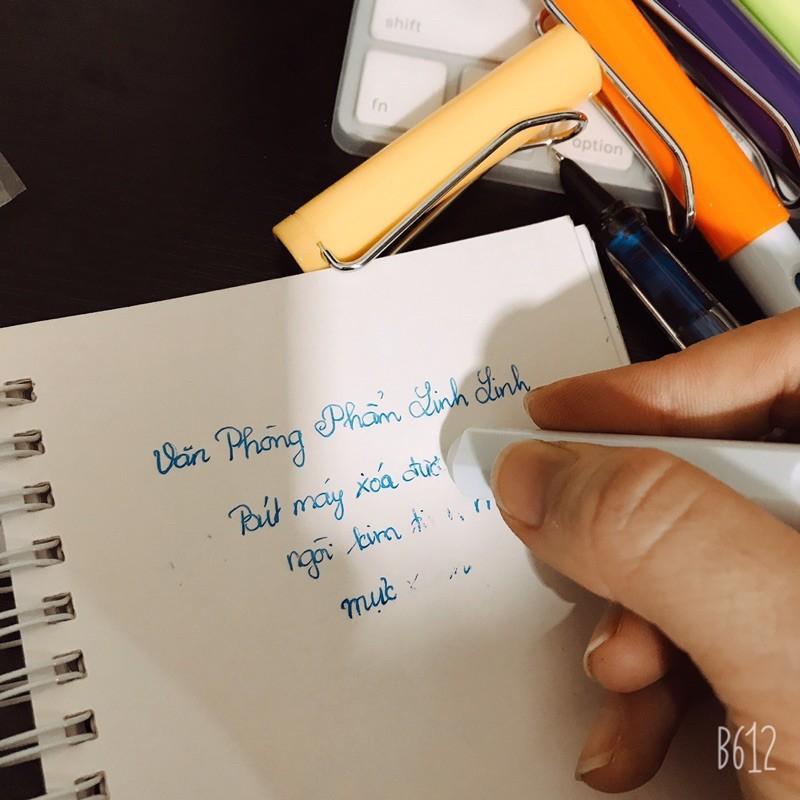 shift
fn
option
Văn Phòng Phẩm Linh Linh
Bút máy xóa
ngòi kim
mực
B612